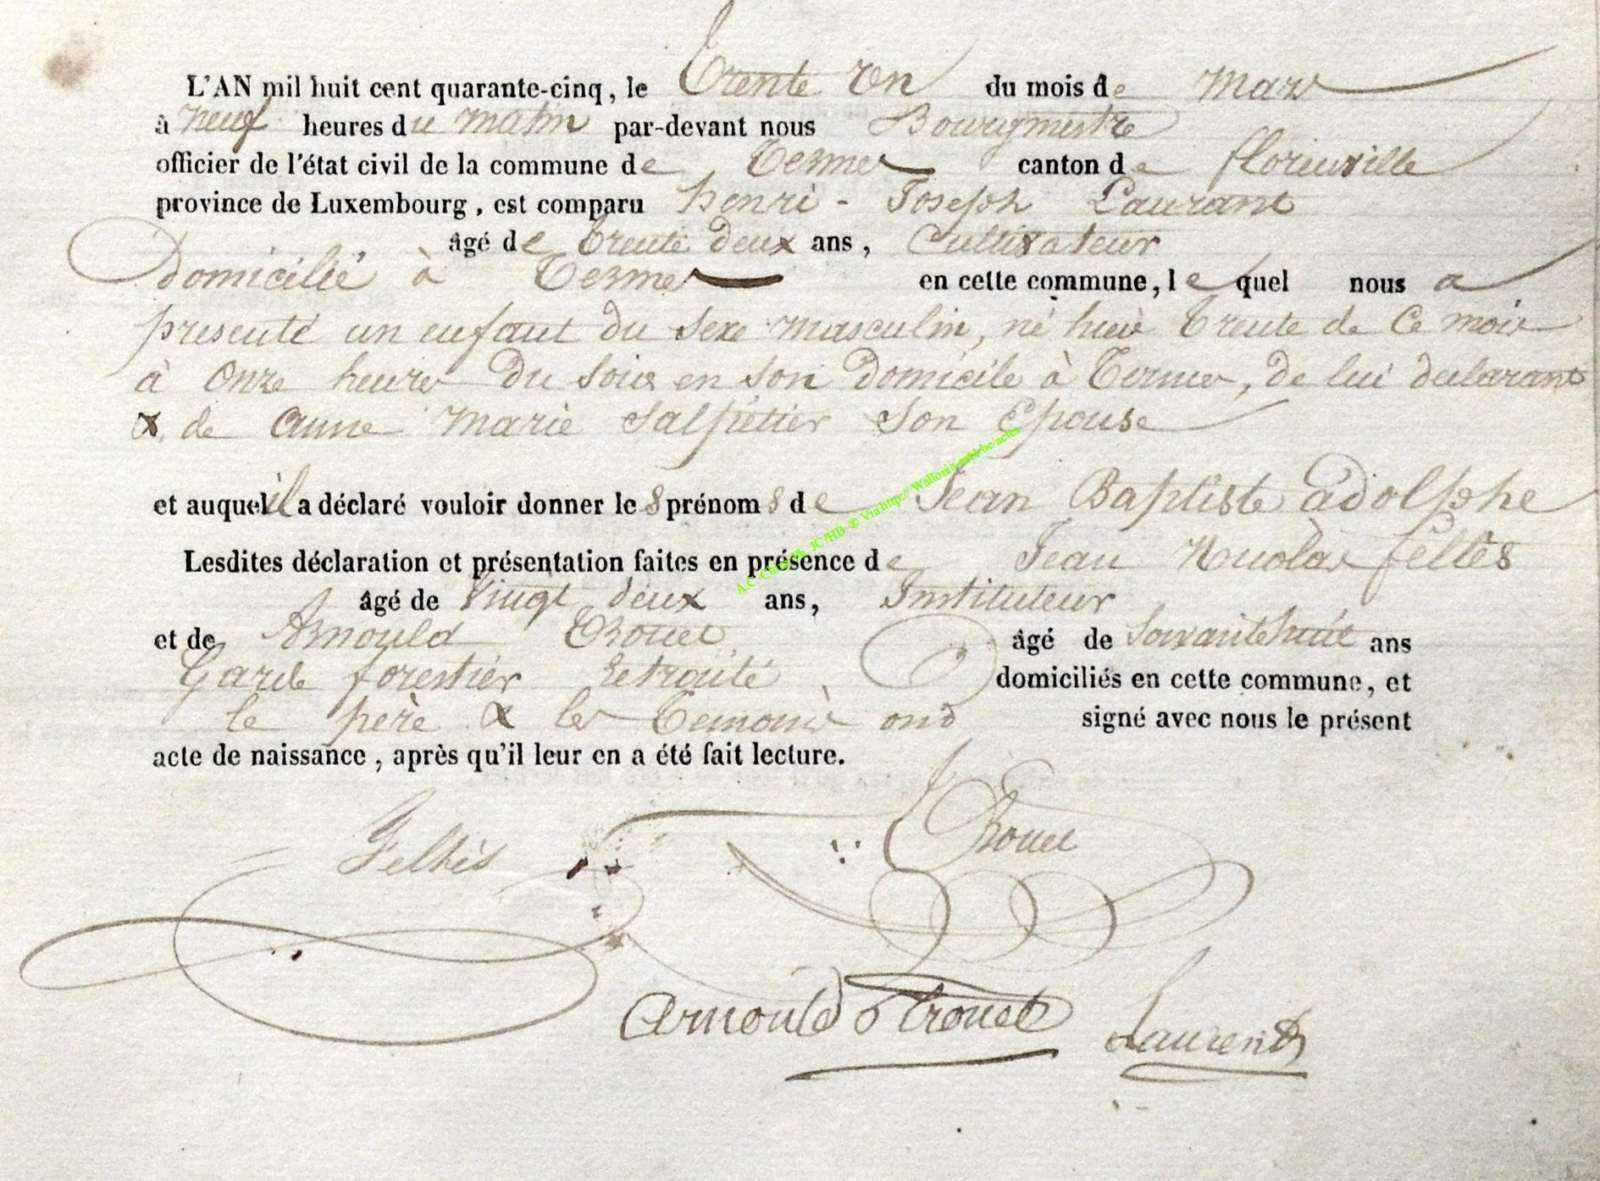 L'AN mil huit cent quarante-cinq, le trente un du mois de Mars
à neuf heures du matin par-devant nous Bourgmestre
officier de l'état civil de la commune de Termes canton de florenville
province de Luxembourg, est comparu henri - Joseph Laurant
âgé de trente deux ans, Cultivateur
Domicilié à Termes en cette commune, lequel nous a
presenté un enfant du sexe masculin, né hier trente de ce mois
à onze heures du soir en son domicile à Termes, de lui declarant
& de anne Marie Salpetier son Epouse
et auquel il a déclaré vouloir donner les prénoms de Jean Baptiste adolphe
Lesdites déclaration et présentation faites en présence de Jean Nicolas felles
âgé de vingt deux ans, Instituteur
et de Arnould Trouet âgé de soixante huit ans
Garde forestier retraité domiciliés en cette commune, et
le père & les temoins ont signé avec nous le présent
acte de naissance, après qu'il leur en a été fait lecture.
Trouet
Arnould Trouet
Laurent